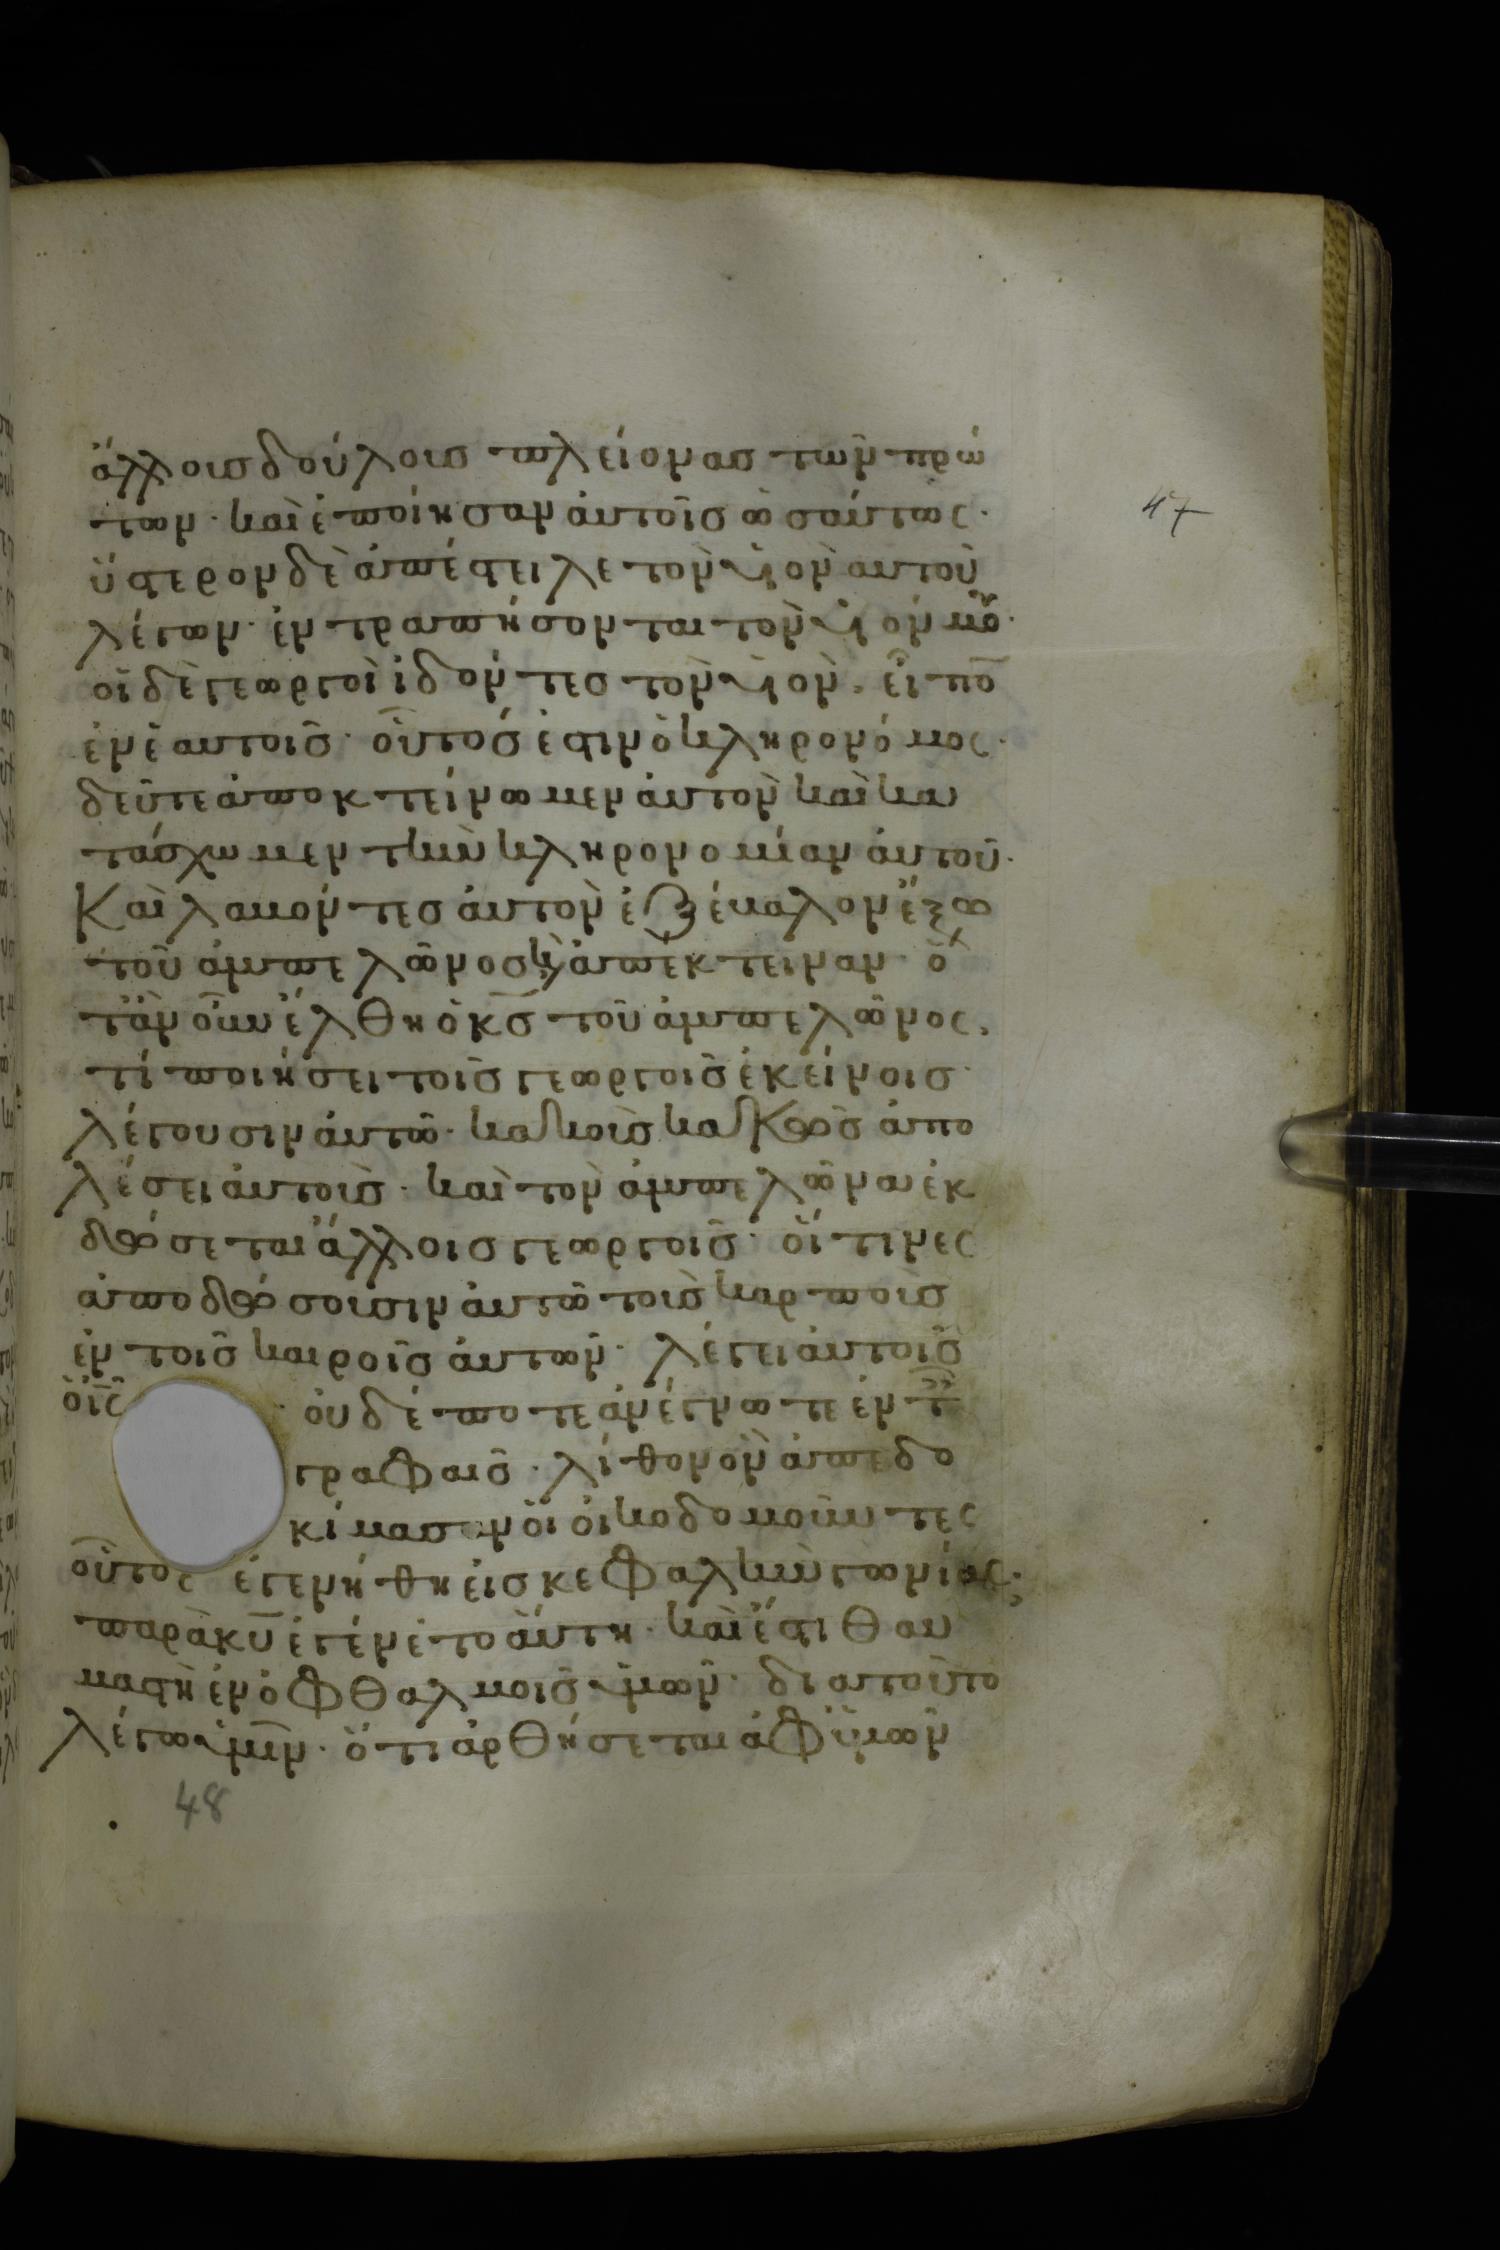 ἄλλοις δούλοις πλείονας τῶν πρώ
των· καὶ ἐποίησαν αὐτοῖς ὡσαύτως·
47
ὕστερον δὲ ἀπέστειλε τὸν υἱὸν αὐτοῦ
λέγων· ἐντραπήσονται τὸν υἱόν μου·
οἱ δὲ γεωργοὶ ἰδόντες τὸν υἱὸν, εἶπο
ἐν ἑαυτοῖς· οὗτός ἐστιν ὁ κληρονόμος·
δεῦτε ἀποκτείνωμεν αὐτὸν καὶ κα
τάσχωμεν τὴν κληρονομίαν αὐτοῦ·
Καὶ λαβόντες αὐτὸν ἐξέβαλον ἔξω
τοῦ ἀμπελῶνος καὶ ἀπέκτειναν· ὅ
τὰν οὖν ἔλθη ὁ κ̅ς̅ τοῦ ἀμπελῶνος,
τί ποιήσει τοῖς γεωργοῖς ἐκείνοις·
λέγουσιν αὐτῶ· κακοὺς κακῶς ἀπο
λέσει αὐτοὺς· καὶ τὸν ἀμπελῶνα ἐκ
δώσεται ἄλλοις γεωργοῖς· οἵτινες
ἀποδώσουσιν αὐτῶ τοὺς καρποὺς
ἐν τοῖς καιροῖς αὐτῶν· λέγει αὐτοῖς
ὁ ι̅ς̅ · οὐδέποτε ἀνέγνωτε ἐν τ
γραφαῖς· λίθον ὃν ἀπεδο
κίμασαν οἱ οἰκοδομοῦντες
οὗτος ἐγενήθη εἰς κεφαλὴν γωνίας·
παρὰ κ̅υ̅ ἐγένετο αὕτη· καὶ ἔστι θαυ
μαστὴ ἐν ὀφθαλμοῖς ἡμῶν· διατοῦτο
λέγω ὑμῖν· ὅτι ἀρθήσεται ἀφ ὑμῶν
48